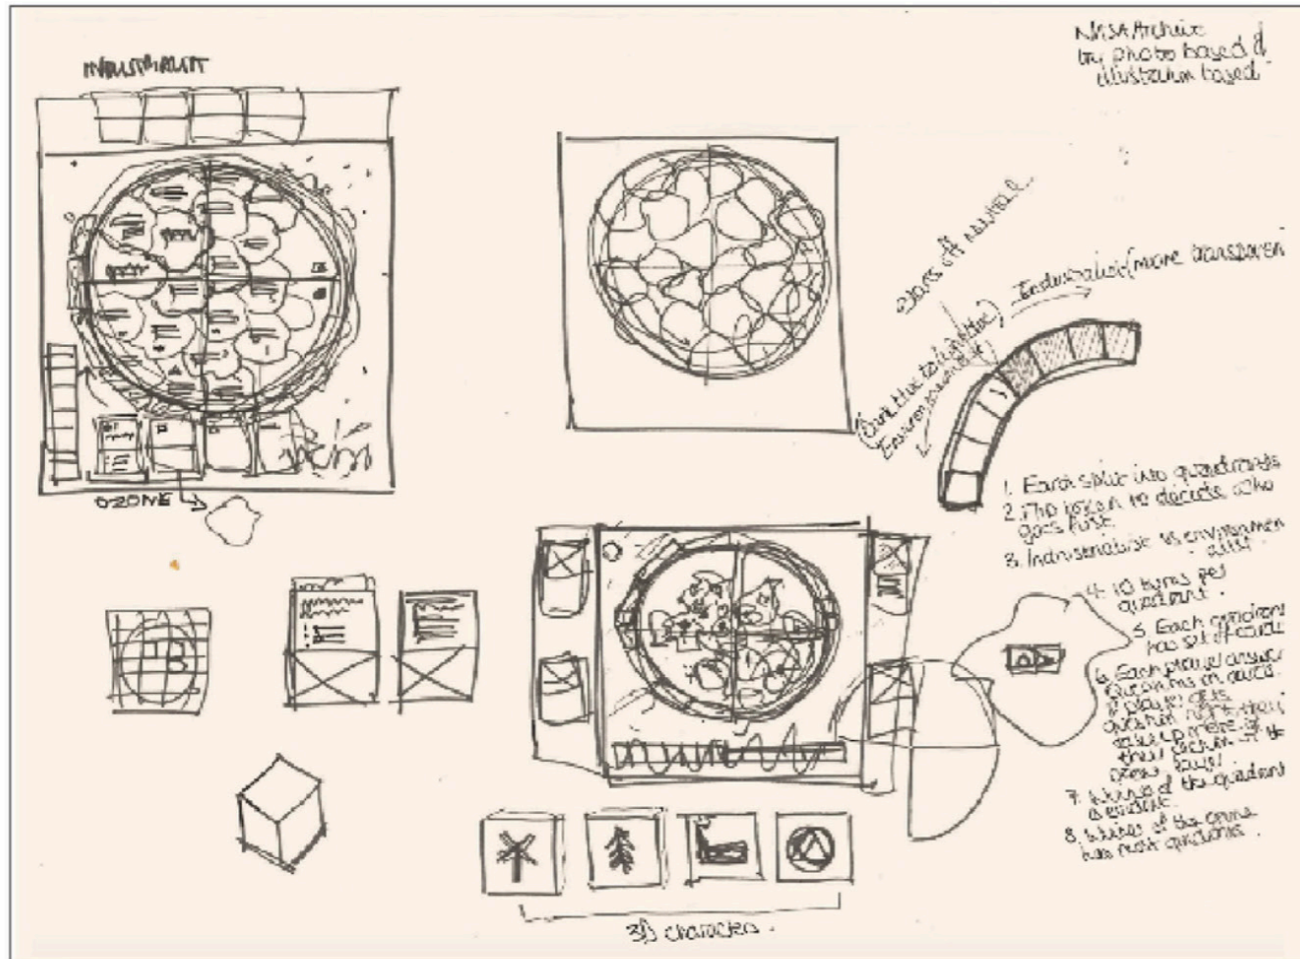 INDUSTRIALIST
NASA Archive
try photo based &
illustration based
starts off neutral
Industrialist (more transparent
(Dark blue to light blue)
Environmentalist
OZONE
1. Earth split into quadrants
2. Flip token to decide who
goes first
3. Industrialist vs environmen
alist
4. 10 turns per
quadrant.
5. Each quadrant
has set of cards
6. Each player answer
questions on cards.
if player gets
question right they
take up more of
their section of the
ozone layer.
7. Winner of the quadrant
is evident.
8. Winner of the game
has most quadrants.
3D characters.